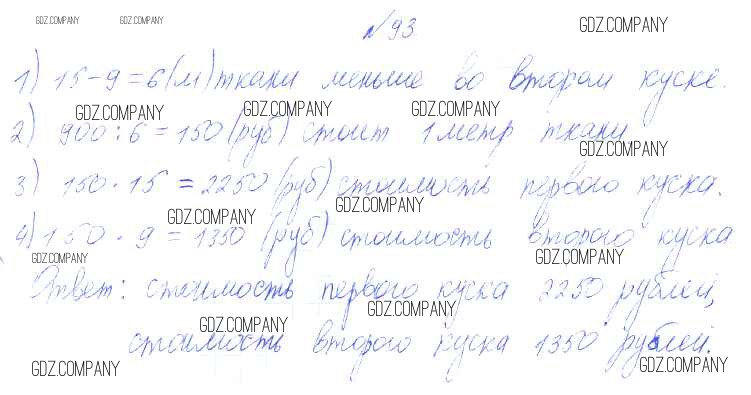 GDZ.COMPANY GDZ.COMPANY №93 GDZ.COMPANY
1) 15-9=6(м) ткани меньше во втором куске.
GDZ.COMPANY GDZ.COMPANY GDZ.COMPANY
2) 900:6=150(руб) стоит 1 метр ткани
GDZ.COMPANY
3) 150·15=2250(руб) стоимость первого куска.
GDZ.COMPANY GDZ.COMPANY
4) 150·9=1350 (руб) стоимость второго куска
GDZ.COMPANY GDZ.COMPANY
Ответ: стоимость первого куска 2250 рублей,
GDZ.COMPANY GDZ.COMPANY
стоимость второго куска 1350 рублей.
GDZ.COMPANY GDZ.COMPANY